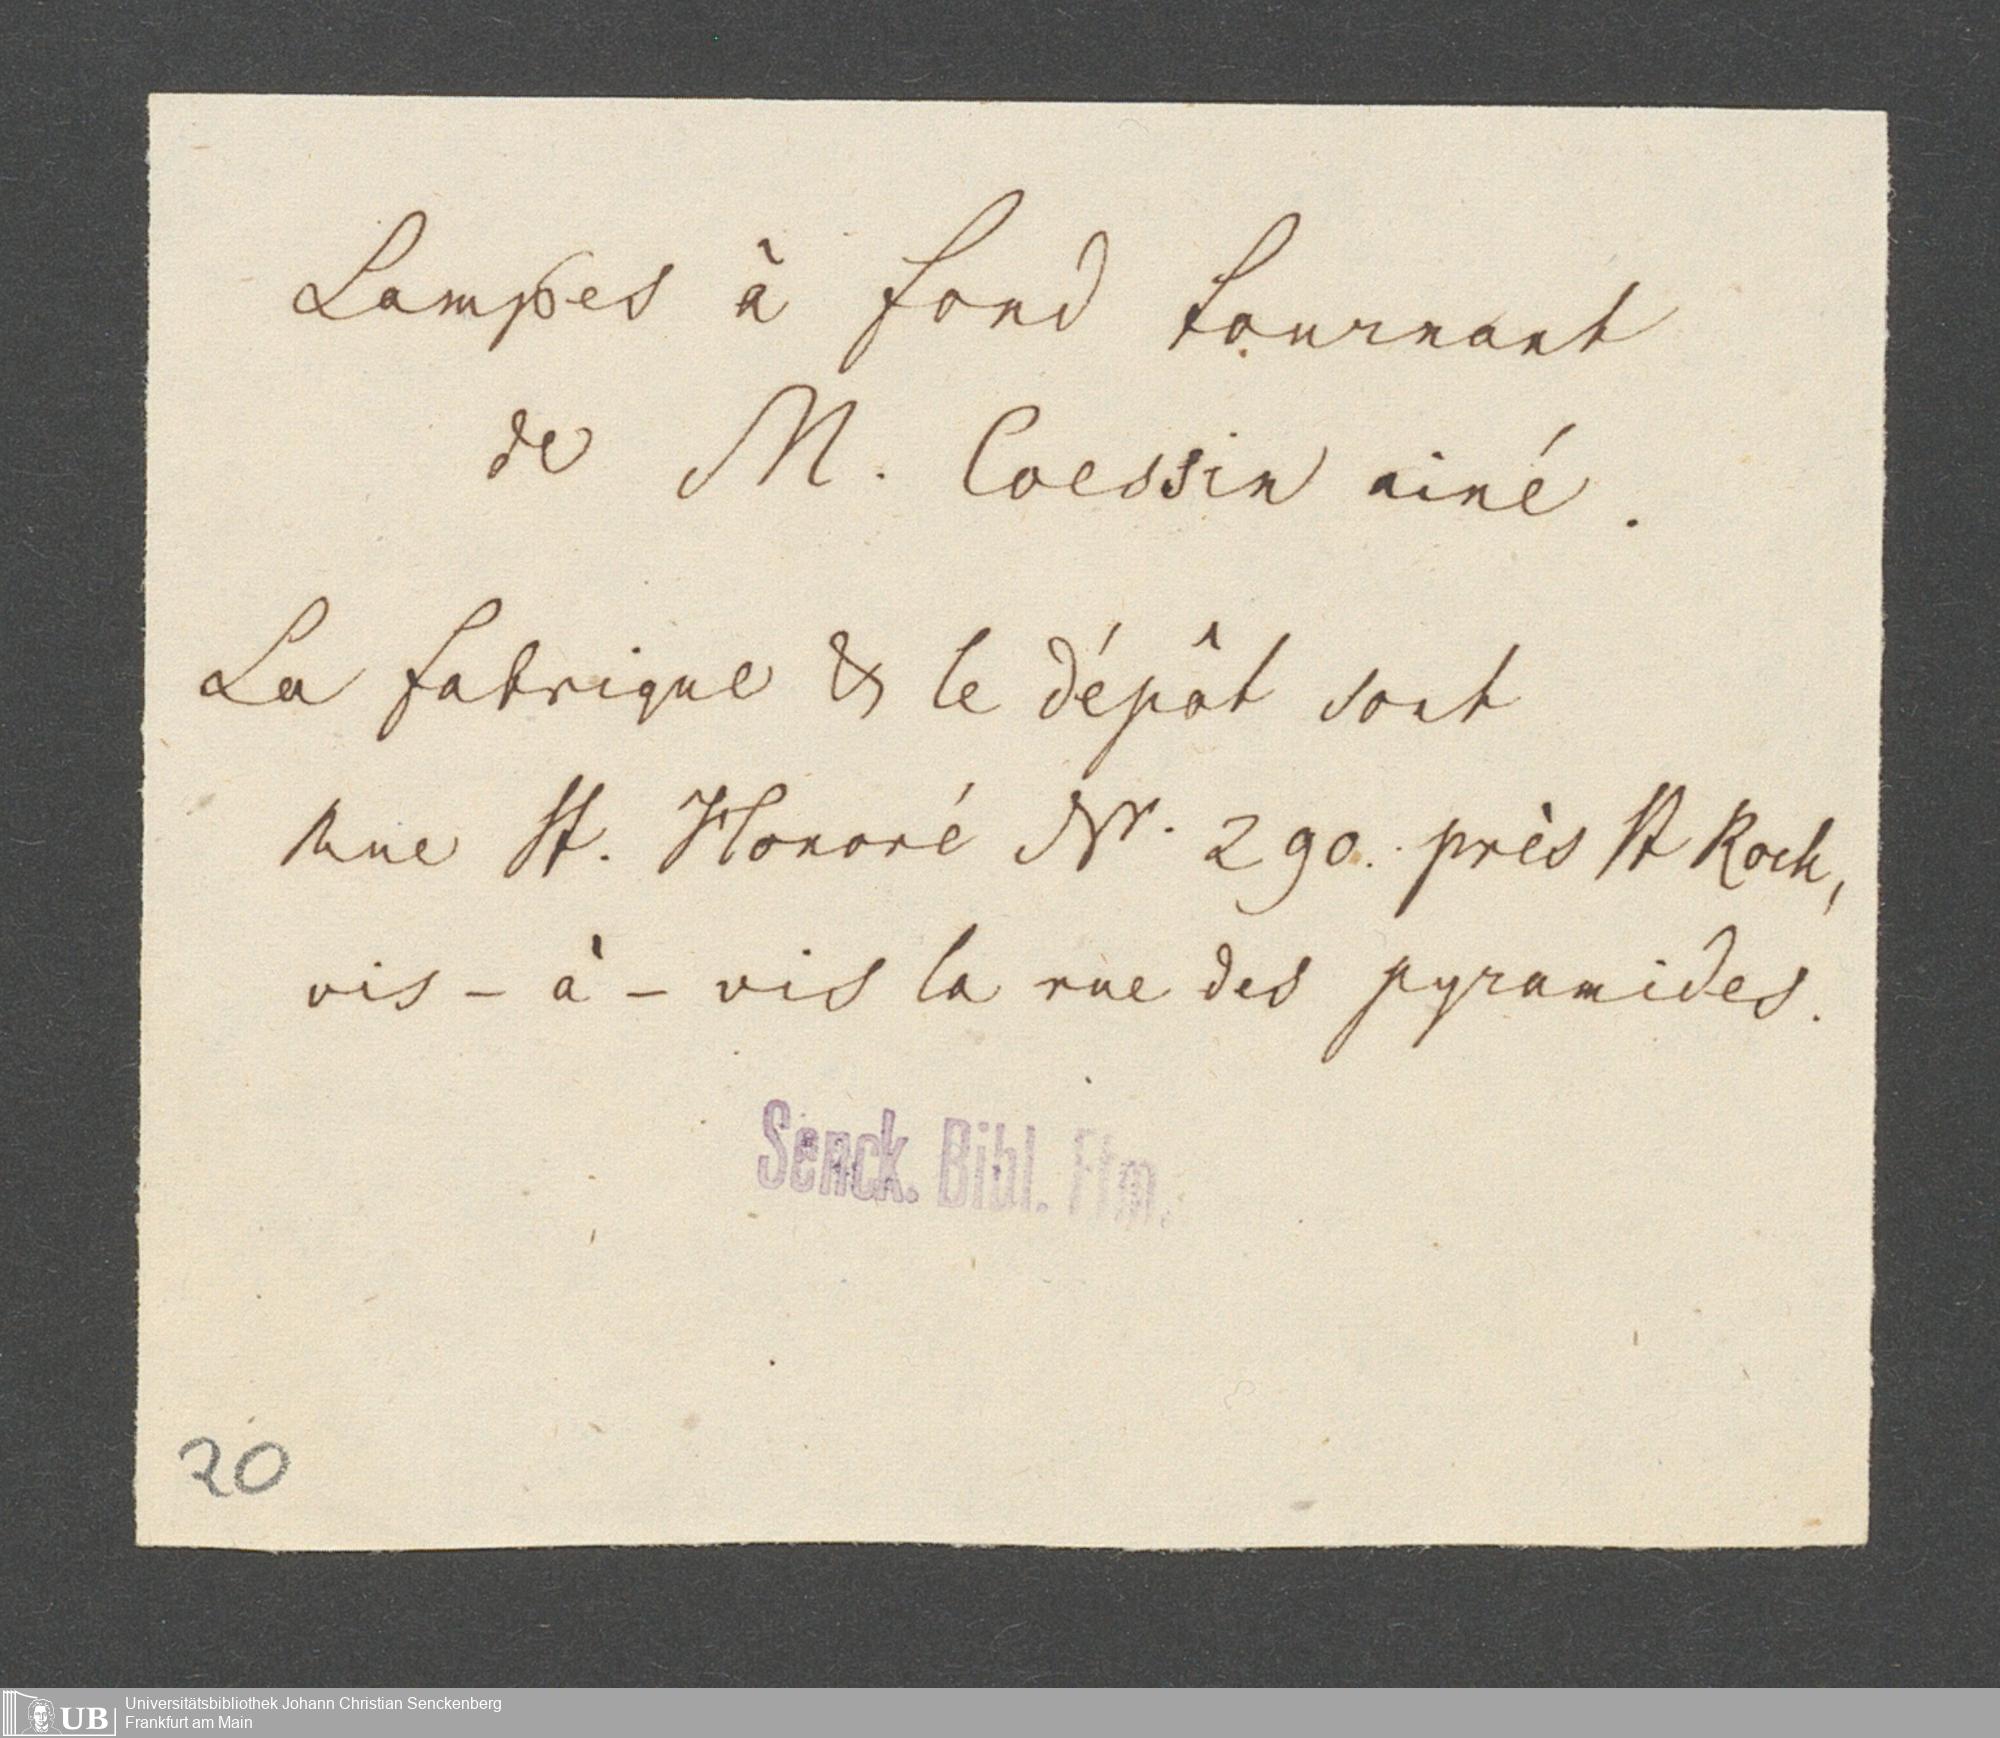 Lampes à fond tournant
de M. Coessin ainé.
La fabrique & le dépôt sont
Rue St. Honoré Nr. 290. près St Roch,
vis-à-vis la rue des pyramides.
Senck. Bibl. Ffm.
20
UB
Universitätsbibliothek Johann Christian Senckenberg
Frankfurt am Main